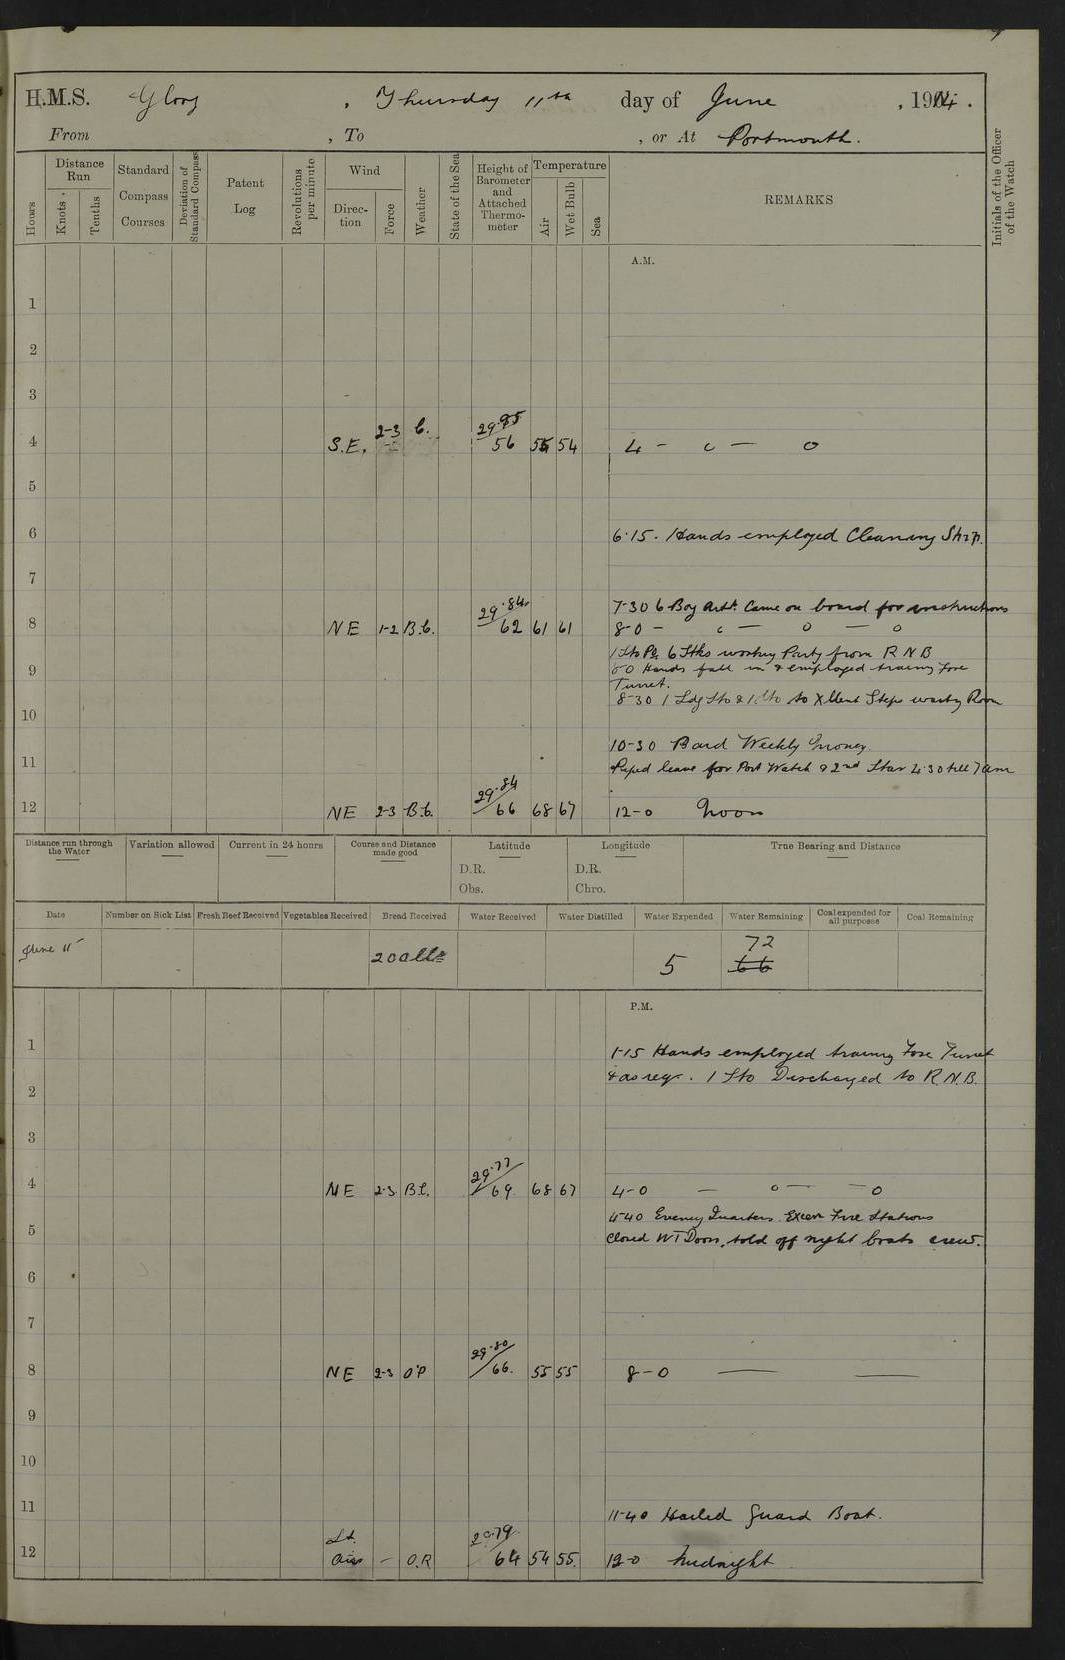 H.M.S. Glory, Thursday 11th day of June, 1914.
From , To , or At Portsmouth.
Hours
Distance Run
Knots
Tenths
Standard Compass Courses
Deviation of Standard Compass
Patent Log
Revolutions per minute
Wind
Direction
Force
Weather
State of the Sea
Height of Barometer and Attached Thermometer
Temperature
Air
Wet Bulb
Sea
REMARKS
Initials of the Officer of the Watch
A.M.
1
2
3
4 S.E. 2-3 b. 29.95/56 54 4 - o - o
5
6 6.15. Hands employed Cleaning Ship.
7
7-30 6 Boy Arts. Came on board for instructions
8 NE 1-2 B.c. 29.84/62 61 61 8-0 - o - o - o
1 Sto Po. 6 Stks working Party from R N B
9 50 Hands fall in & employed training Fore
Turret.
8-30 1 Ldg Sto & 1 Sto to Xllent Steps
10
10-30 Paid Weekly money.
11 Piped leave for Port Watch & 2nd Star 4.30 till 7 am
12 NE 2-3 B.c. 29.84/66 68 67 12-0 Noon
Distance run through the Water
Variation allowed
Current in 24 hours
Course and Distance made good
Latitude
D.R.
Obs.
Longitude
D.R.
Chro.
True Bearing and Distance
Date
Number on Sick List
Fresh Beef Received
Vegetables Received
Bread Received
Water Received
Water Distilled
Water Expended
Water Remaining
Coal expended for all purposes
Coal Remaining
June 11 200 lbs 5 72
66
P.M.
1 1-15 Hands employed training Fore Turret
2 & as req. 1 Sto Discharged to R.N.B.
3
4 NE 2-3 B.C. 29.77/69 68 67 4-0 - o - - o
4-40 Evening Quarters. Exer. Fire Stations
5 Closed WT Doors, told off night boats crew.
6
7
8 NE 2-3 OP 29.80/66. 55 55 8-0 — —
9
10
11 11-40 Hailed Guard Boat.
12 Lt. Airs - O.R 29.79/64 54 55. 12-0 Midnight